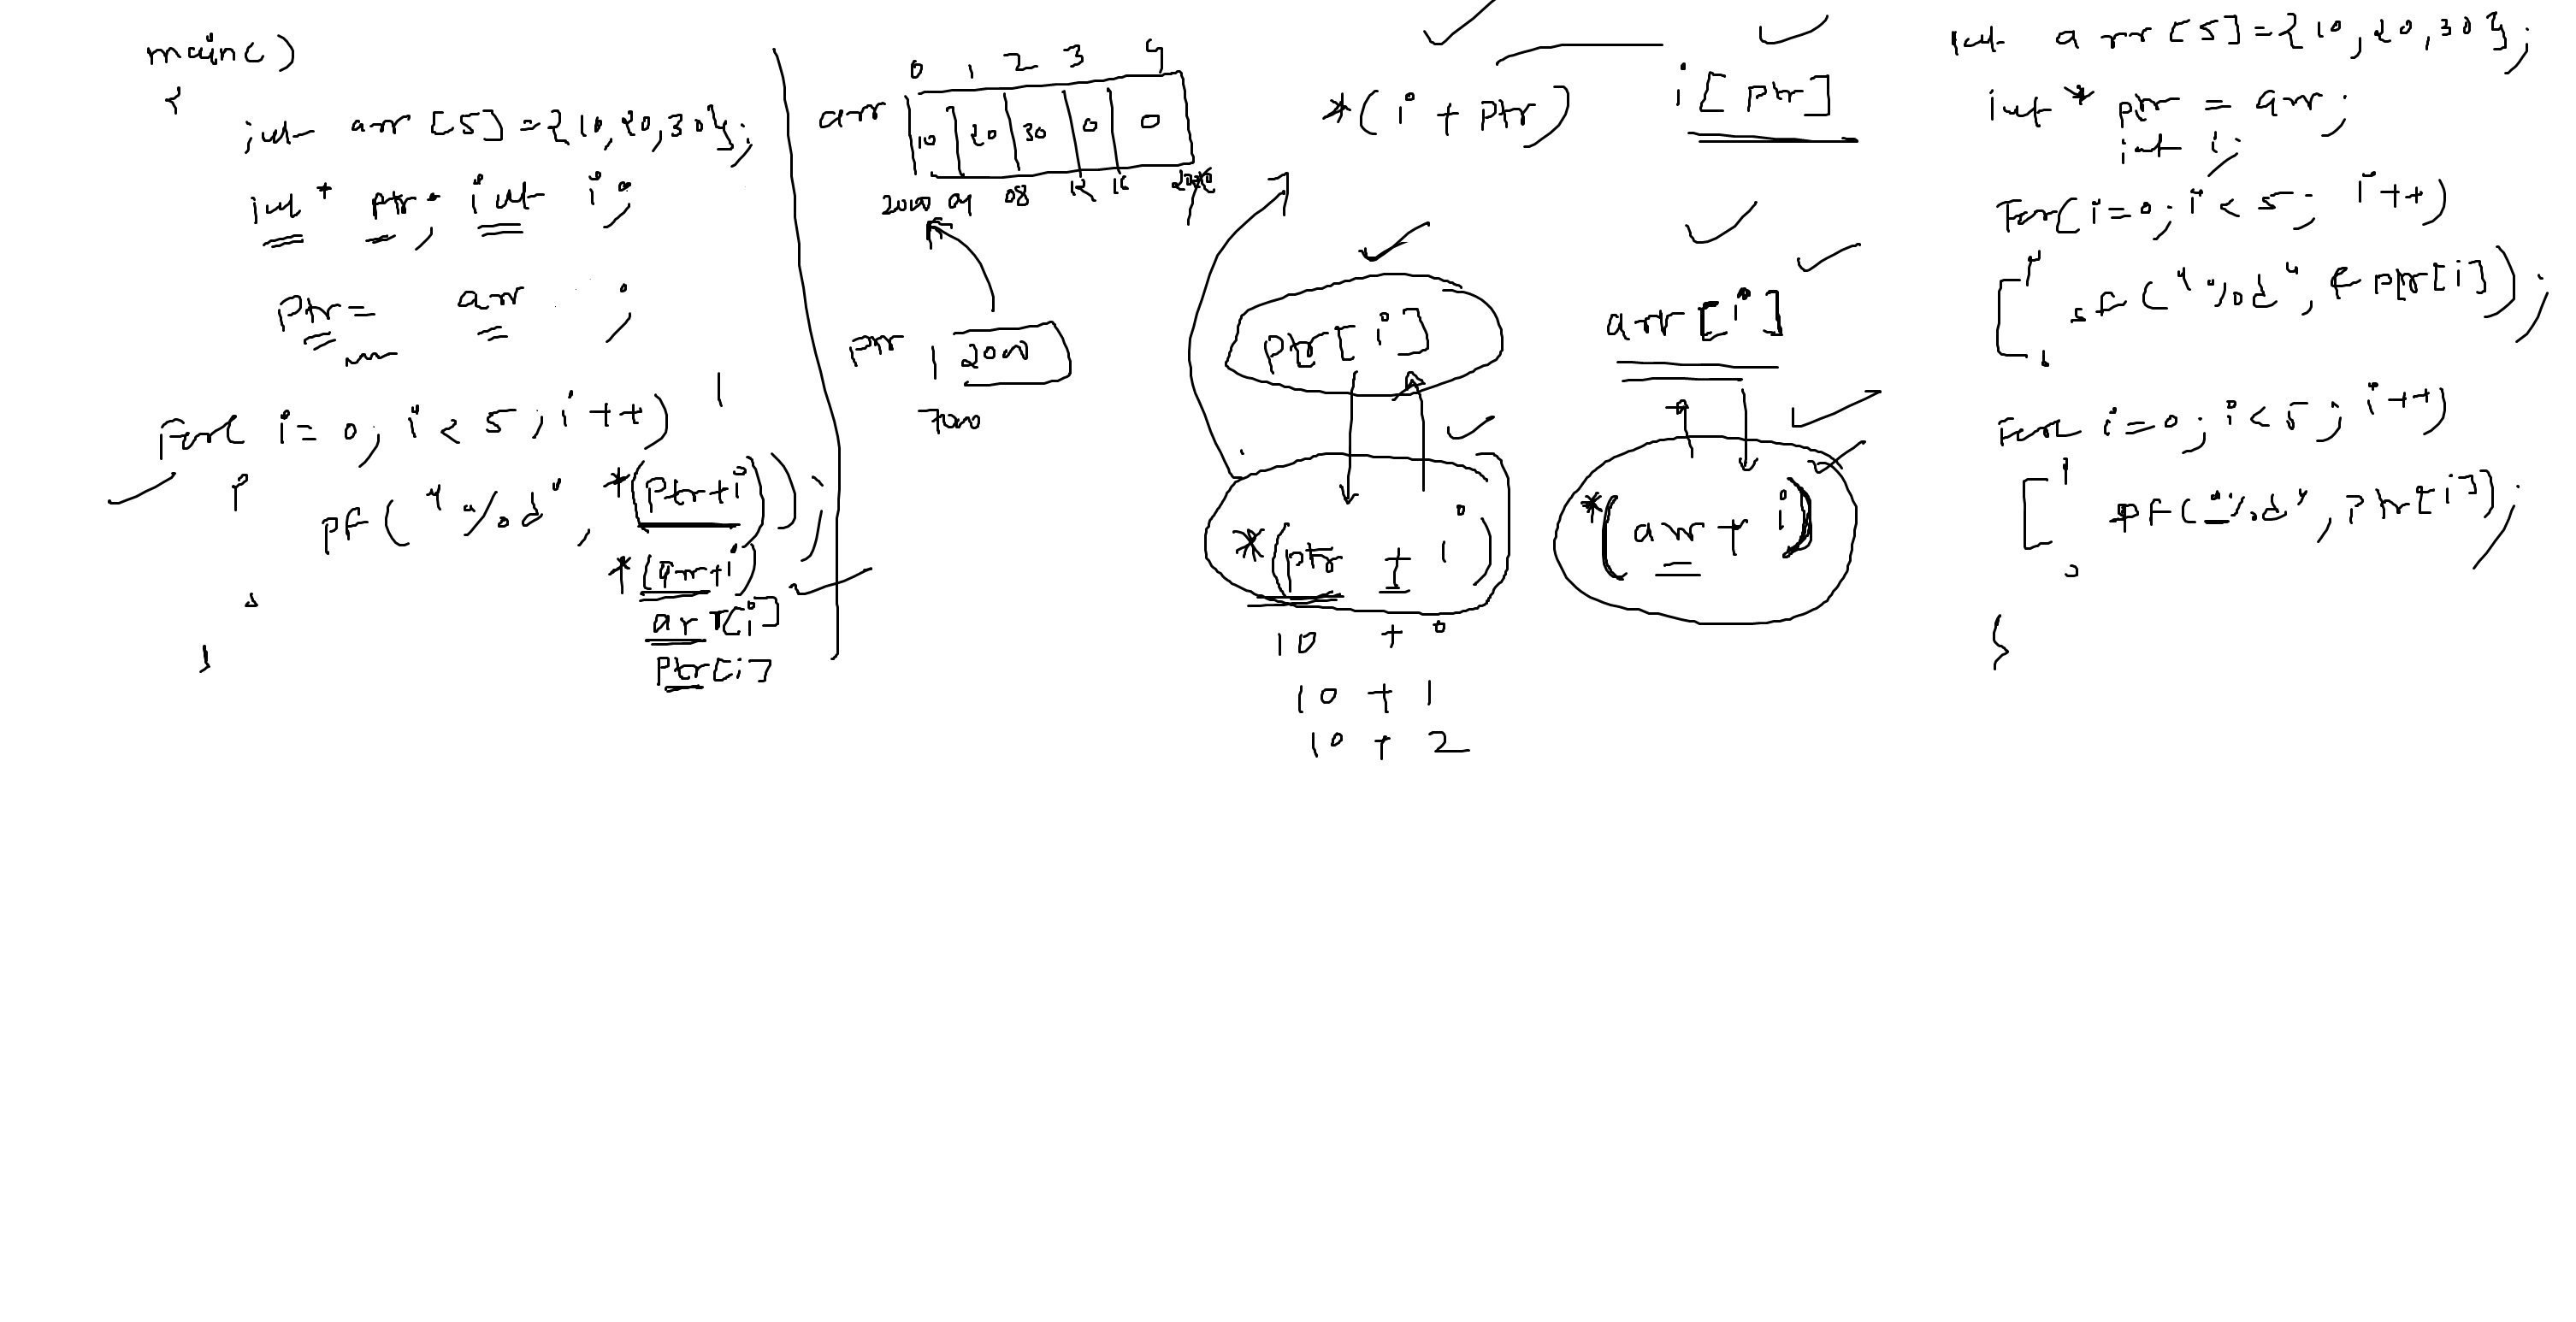 main()
{
int arr[5]={10,20,30};
int * ptr; int i;
ptr= arr ;
For( i=0; i<5; i++)
{
pf("%d", *(ptr+i));
*(arr+i)
arr[i]
ptr[i]
}
}
0 1 2 3 4
arr 10 20 30 0 0
2000 04 08 12 16 2020
ptr 2000
7000
*(i + ptr) i[ptr]
ptr[i] arr[i]
*(ptr + i) *(arr + i)
10 + 0
10 + 1
10 + 2
int arr[5]={10,20,30};
int * ptr = arr;
int i;
For(i=0; i<5; i++)
{
sf("%d", &ptr[i]);
}
For( i=0; i<5; i++)
{
pf("%d", ptr[i]);
}
}